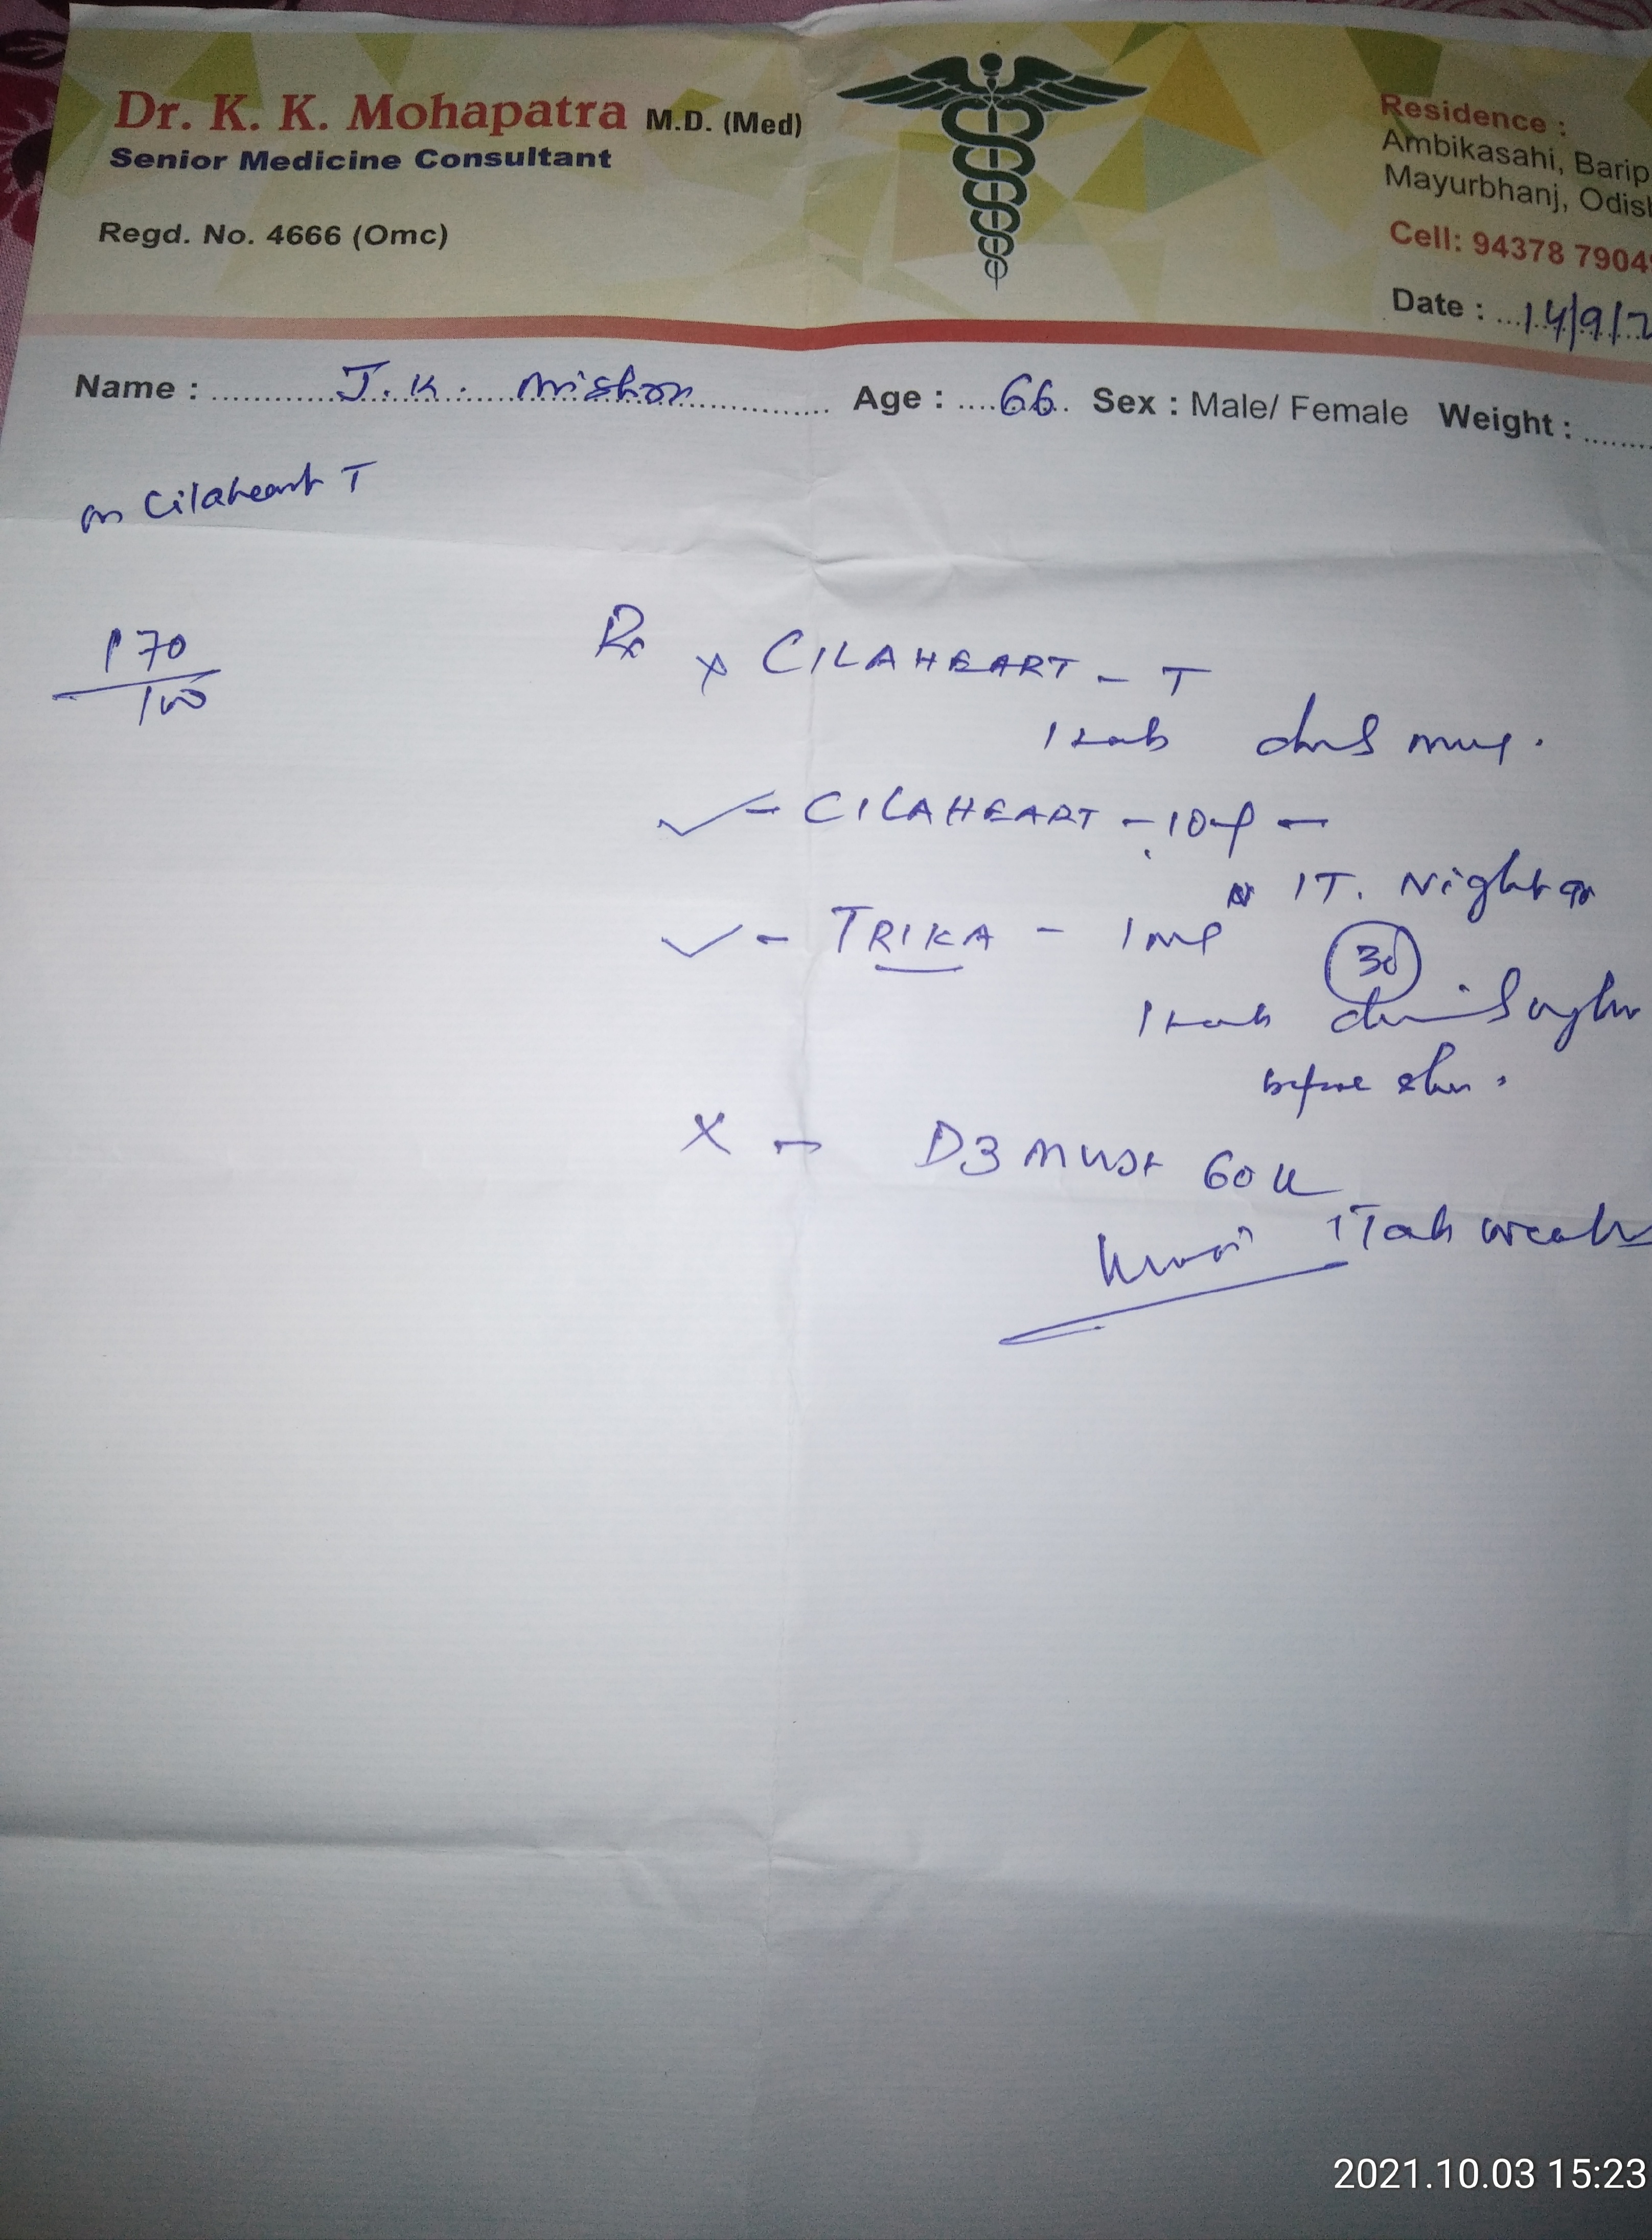 Dr. K. K. Mohapatra M.D. (Med)
Senior Medicine Consultant
Regd. No. 4666 (Omc)
Residence :
Ambikasahi, Barip
Mayurbhanj, Odis
Cell: 94378 7904
Date : 14/9/2
Name : J. K. Mishra Age : 66 Sex : Male/ Female Weight :
on Cilaheart T
170
100
Rx x CILAHEART - T
1 tab
✓ - CILAHEART - 10
1T. Night
✓ - TRIKA - 1 mg
30
1 tab
before
X - D3 MUST 60 K
1 Tab
2021.10.03 15:23